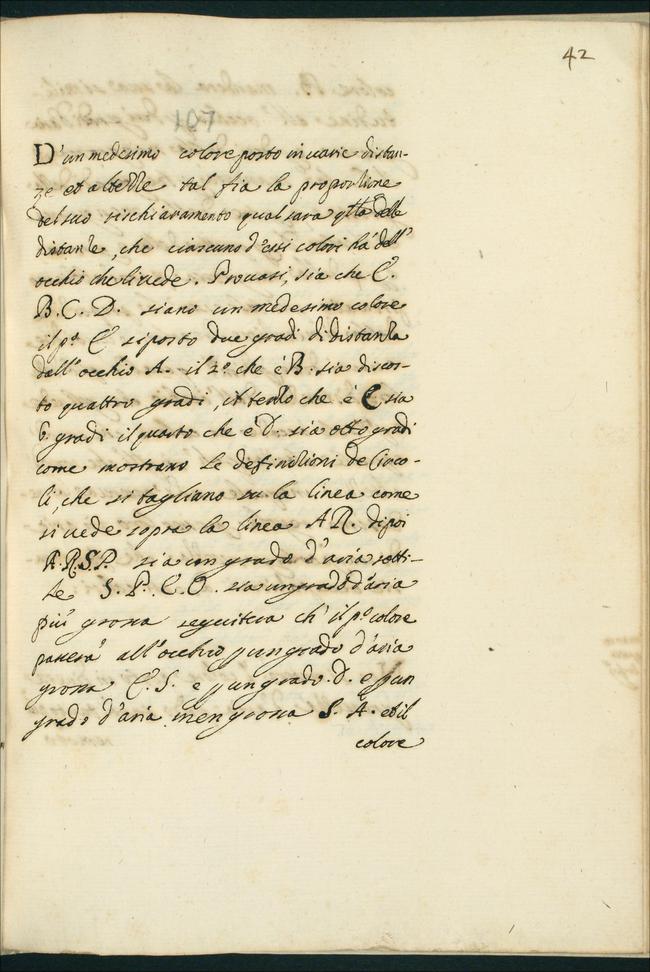 42
107
D'un medesimo colore posto in varie distan-
ze et altezze tal fia la proportione
del suo rischiaramento qual sara qlla delle
distanze, che ciascuno d'essi colori ha dall'
occhio che li vede. Provasi, sia che E.
B. C. D. siano un medesimo colore
il p.º E si posto due gradi di distanza
dall'occhio A. il 2.º che è B. sia discos-
to quattro gradi, il terzo che è C sia
6. gradi il quarto che è D. sia otto gradi
come mostrano le definizioni de Circo-
li, che si tagliano su la linea come
si vede sopra la linea A R. dipoi
A.R.S.P. sia un grado d'aria sotti-
le S. P. E. O. sia un grado d'aria
più grossa seguitera ch' il p.º colore
passera all'occhio p un grado d'aria
grossa E. S. e p un grado. D. e p un
grado d'aria men grossa S. A. et il
colore